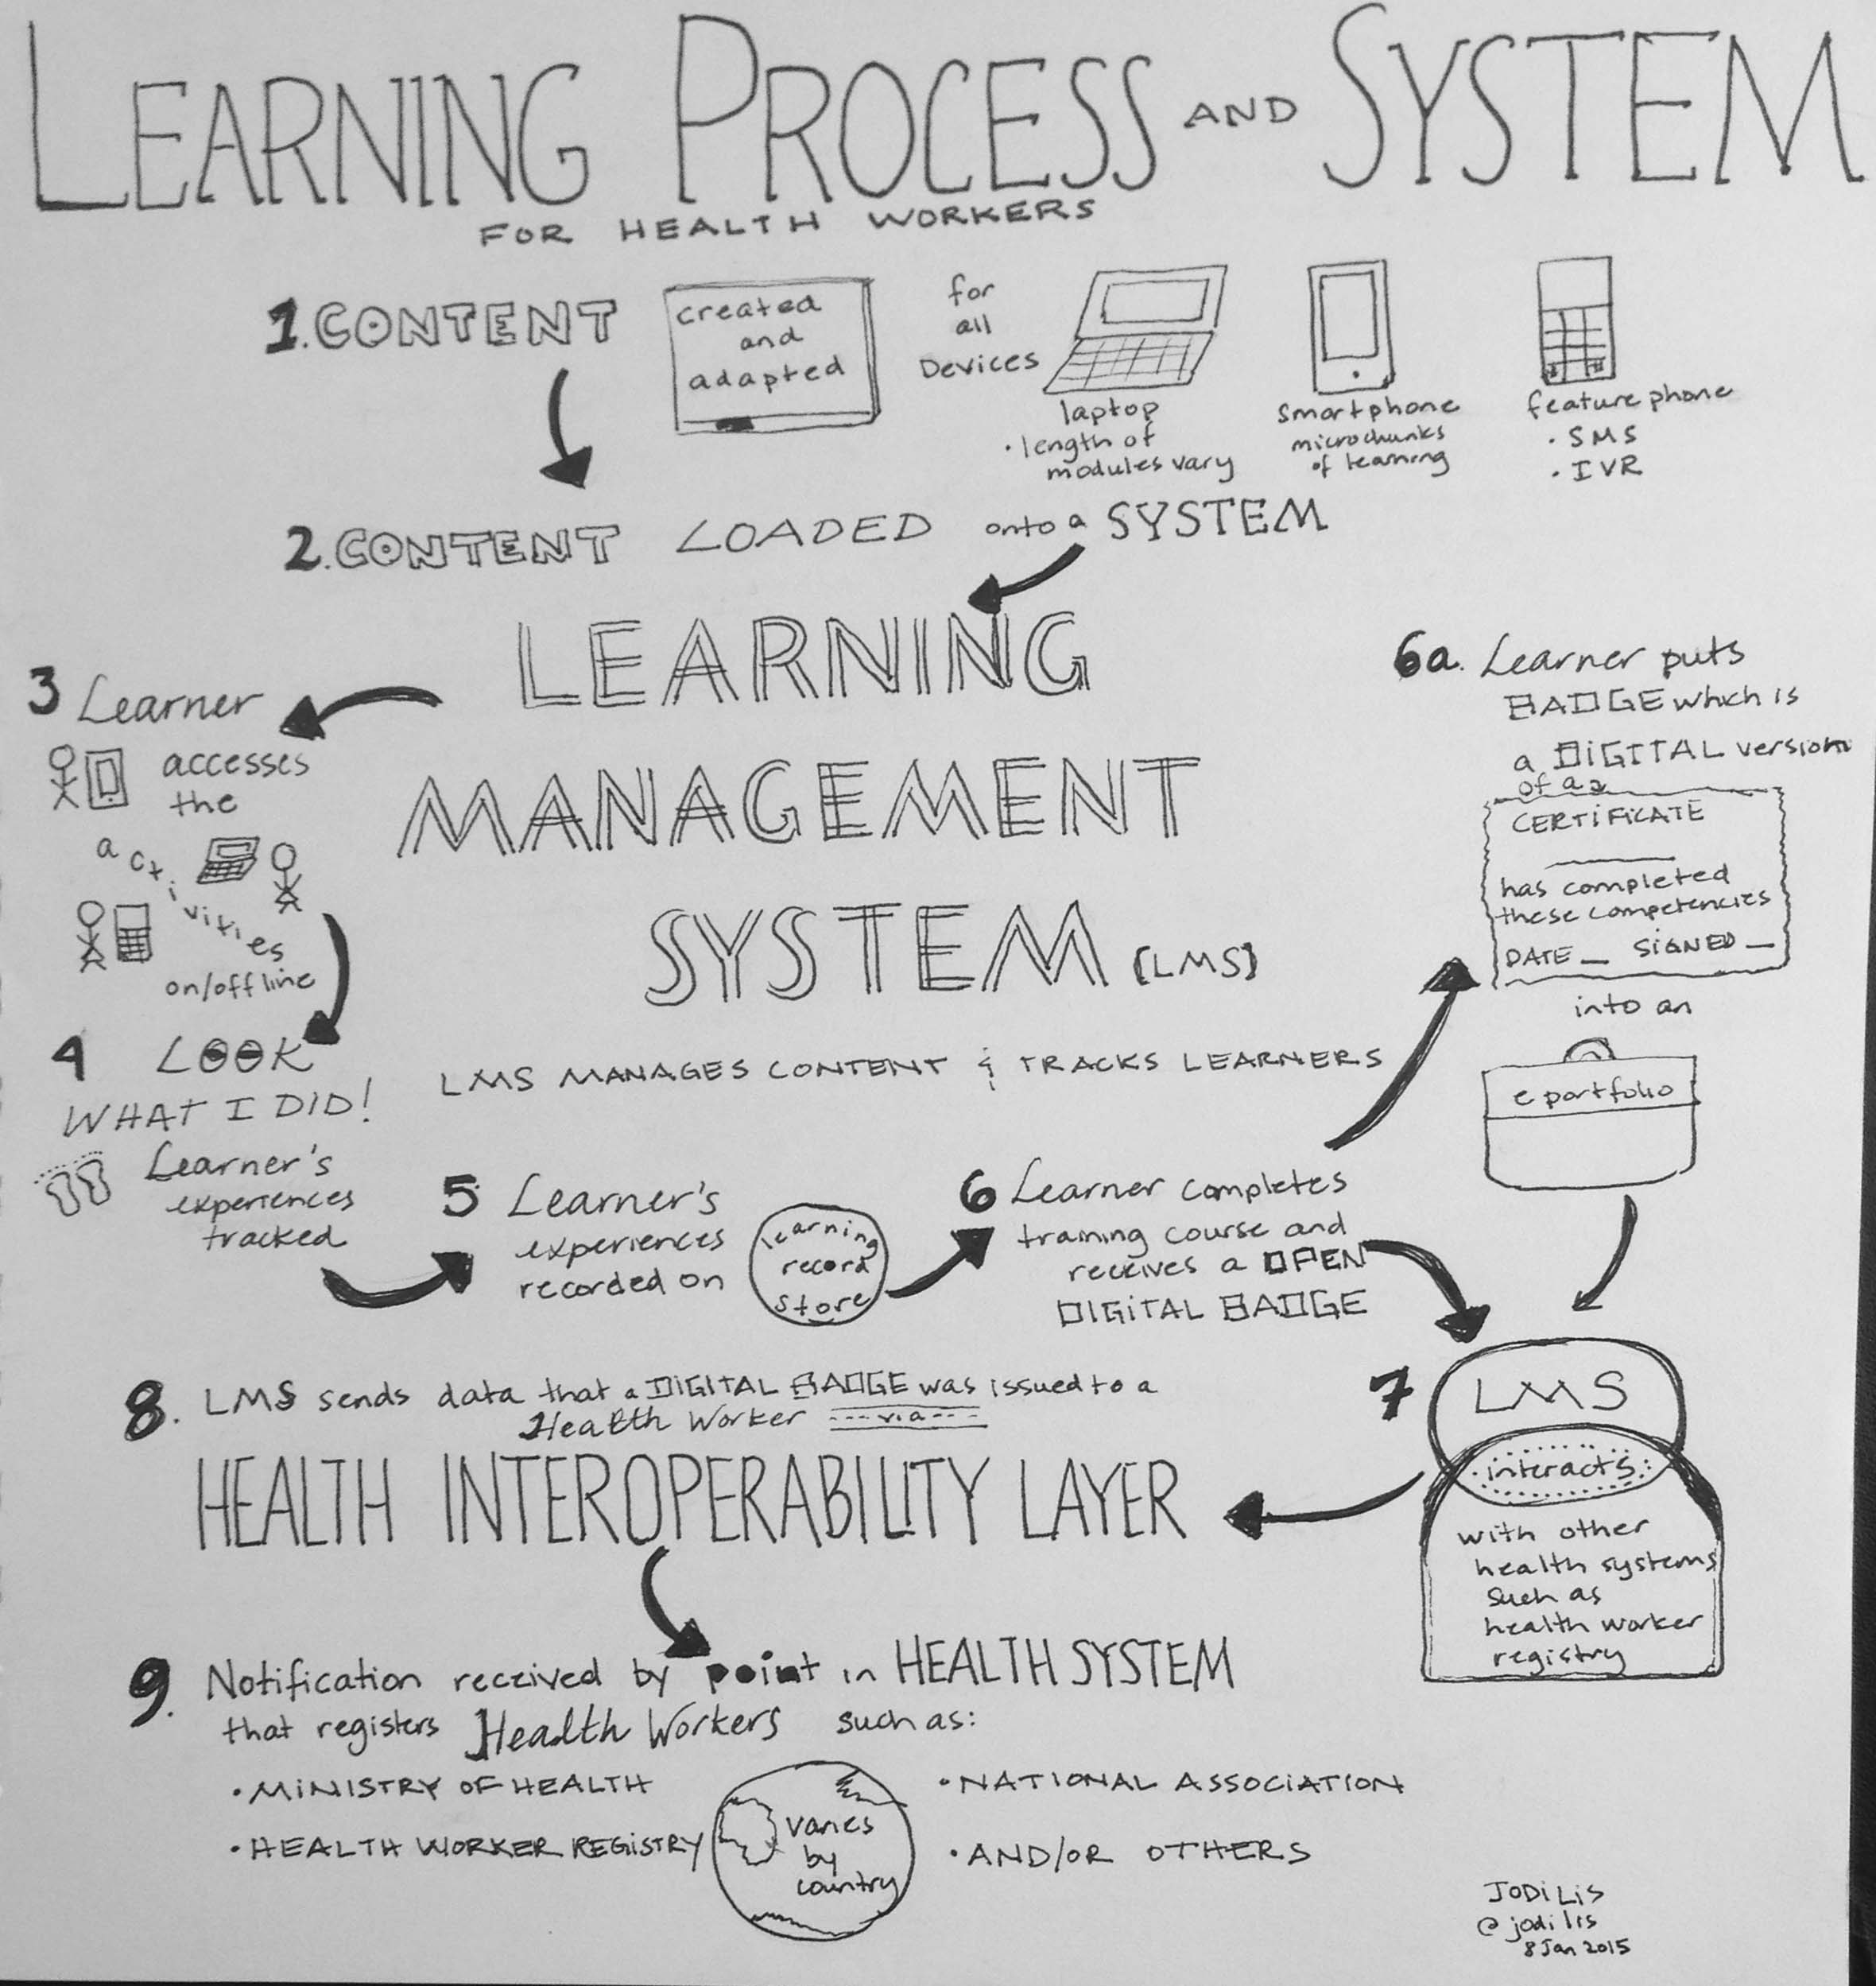 LEARNING PROCESS AND SYSTEM
FOR HEALTH WORKERS
1. CONTENT
created
and
adapted
for
all
Devices
laptop
· length of
modules vary
smartphone
microchunks
of learning
feature phone
· SMS
· IVR
2. CONTENT LOADED onto a SYSTEM
LEARNING
MANAGEMENT
SYSTEM [LMS]
LMS MANAGES CONTENT & TRACKS LEARNERS
3 Learner
accesses
the
activities
on/offline
4 LOOK
WHAT I DID!
Learner's
experiences
tracked
5 Learner's
experiences
recorded on
learning
record
store
6 Learner completes
training course and
receives a OPEN
DIGITAL BADGE
6a. Learner puts
BADGE which is
a DIGITAL version
of a
CERTIFICATE
has completed
these competencies
DATE __ SIGNED __
into an
e portfolio
7
LMS
interacts
with other
health systems
such as
health worker
registry
8. LMS sends data that a DIGITAL BADGE was issued to a
Health Worker ---via---
HEALTH INTEROPERABILITY LAYER
9. Notification received by point in HEALTH SYSTEM
that registers Health Workers such as:
· MINISTRY OF HEALTH
· HEALTH WORKER REGISTRY
varies
by
country
· NATIONAL ASSOCIATION
· AND/OR OTHERS
JODI LIS
@jodilis
8 Jan 2015